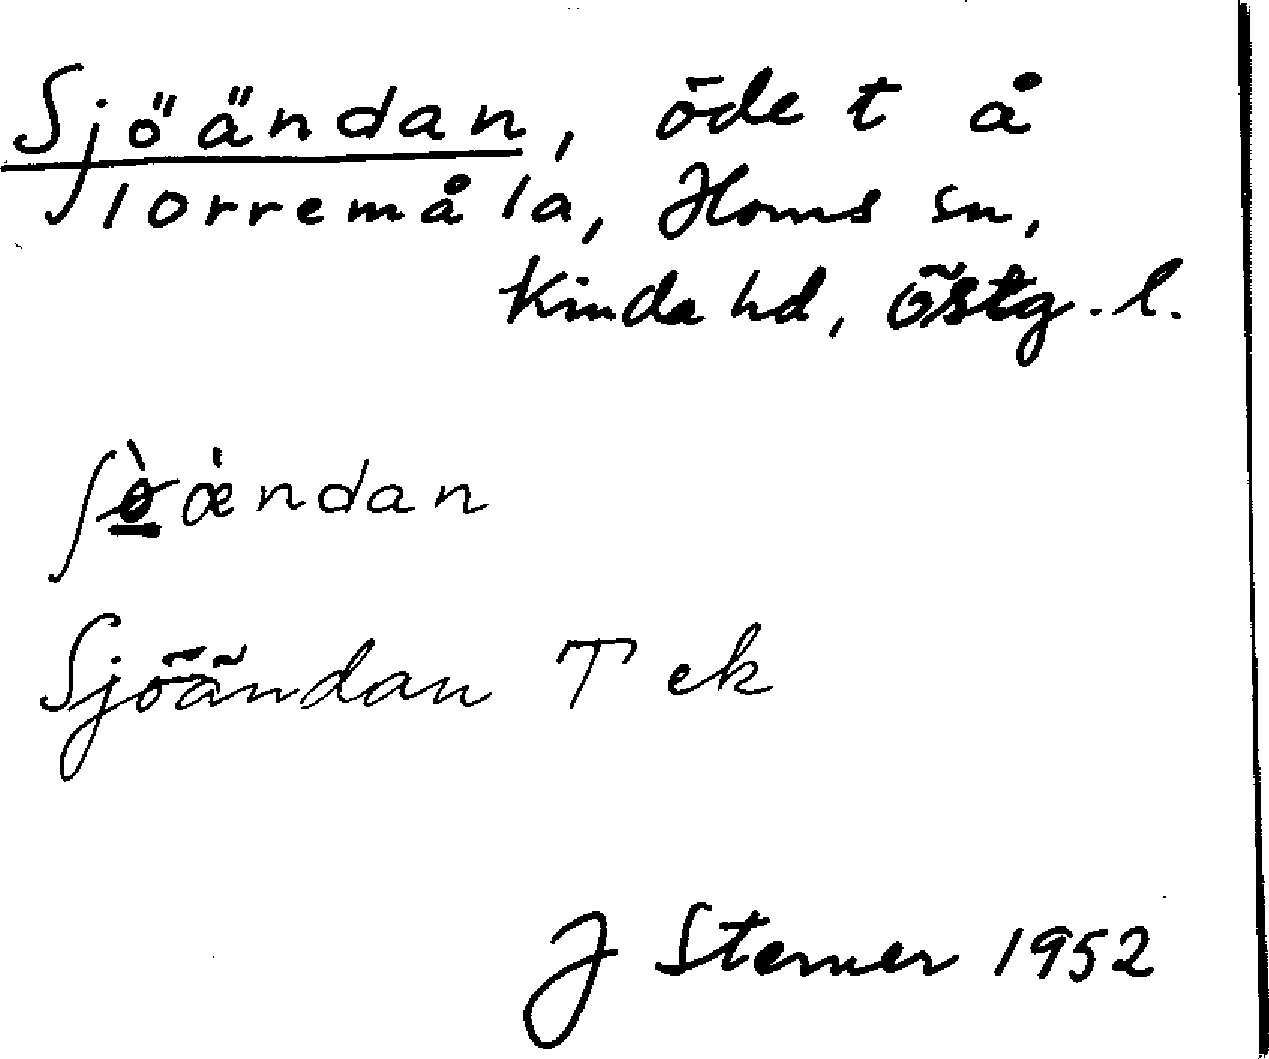 Sjöändan, öde t å
Torremåla, Horns sn,
Kinda hd, Östg. l.
ʃø̀ǿndan
Sjöändan T ek
J Sterner 1952